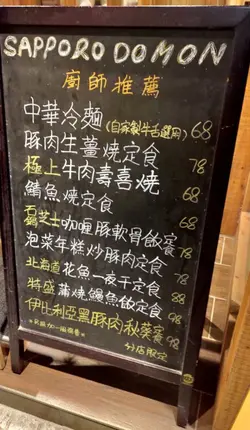 SAPPORO DOMON
廚師推薦
中華冷麵(自家製牛舌選用) 68
豚肉生薑燒定食 78
極上牛肉壽喜燒 68
鯖魚燒定食 68
石鍋芝士咖喱豚軟骨飯 78
泡菜年糕炒豚肉定食 78
北海道花魚一夜干定食 88
特盛蒲燒鰻魚飯定食 98
伊比利亞黑豚肉秋葵 98
分店限定